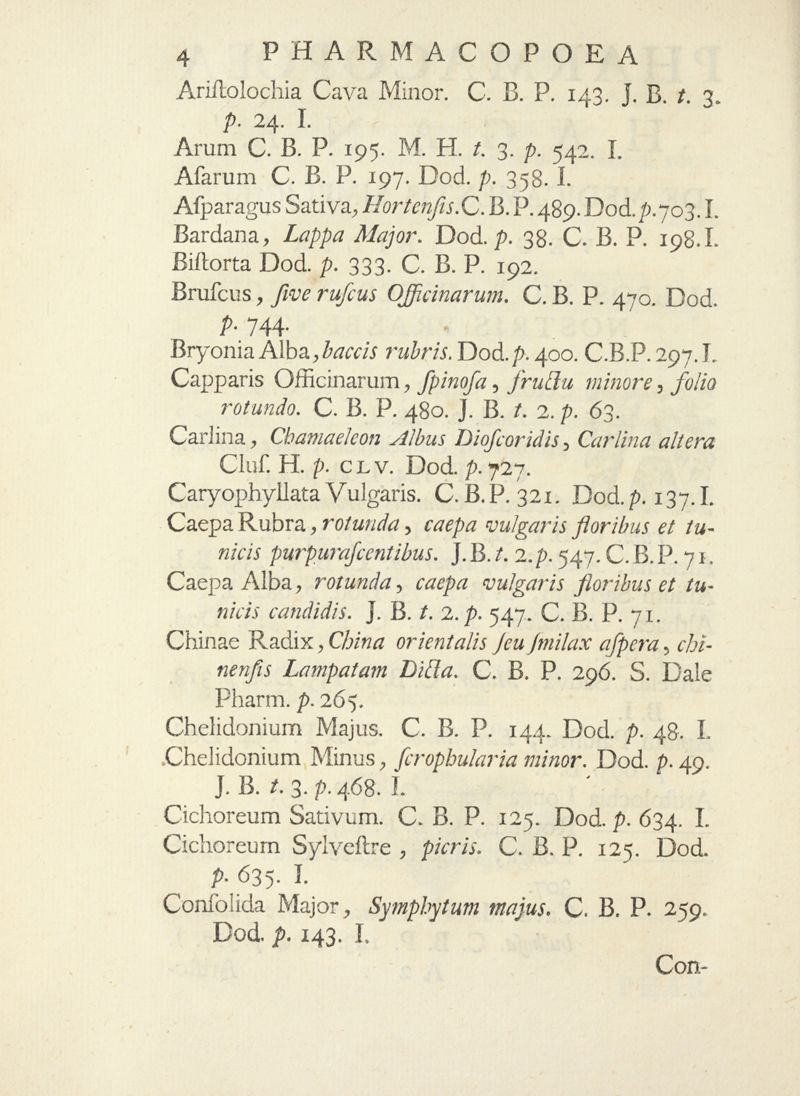 4 PHARMACOPOEA
Ariſtolochia Cava Minor. C. B. P. 143. J. B. t. 3.
p. 24. I.
Arum C. B. P. 195. M. H. t. 3. p. 542. I.
Aſarum C. B. P. 197. Dod. p. 358. I.
Aſparagus Sativa, Hortenſis. C. B. P. 489. Dod. p. 703. I.
Bardana, Lappa Major. Dod. p. 38. C. B. P. 198. I.
Biſtorta Dod. p. 333. C. B. P. 192.
Bruſcus, ſive ruſcus Officinarum. C. B. P. 470. Dod.
p. 744.
Bryonia Alba, baccis rubris. Dod. p. 400. C.B.P. 297. I.
Capparis Officinarum, ſpinoſa, fructu minore, folio
rotundo. C. B. P. 480. J. B. t. 2. p. 63.
Carlina, Chamaeleon Albus Dioſcoridis, Carlina altera
Cluſ. H. p. CLV. Dod. p. 727.
Caryophyllata Vulgaris. C. B. P. 321. Dod. p. 137. I.
Caepa Rubra, rotunda, caepa vulgaris floribus et tu-
nicis purpuraſcentibus. J. B. t. 2. p. 547. C. B. P. 71.
Caepa Alba, rotunda, caepa vulgaris floribus et tu-
nicis candidis. J. B. t. 2. p. 547. C. B. P. 71.
Chinae Radix, China orientalis ſeu ſmilax aſpera, chi-
nenſis Lampatam Dicta. C. B. P. 296. S. Dale
Pharm. p. 265.
Chelidonium Majus. C. B. P. 144. Dod. p. 48. I.
Chelidonium Minus, ſcrophularia minor. Dod. p. 49.
J. B. t. 3. p. 468. I.
Cichoreum Sativum. C. B. P. 125. Dod. p. 634. I.
Cichoreum Sylveſtre, picris. C. B. P. 125. Dod.
p. 635. I.
Conſolida Major, Symphytum majus. C. B. P. 259.
Dod. p. 143. I.
Con-